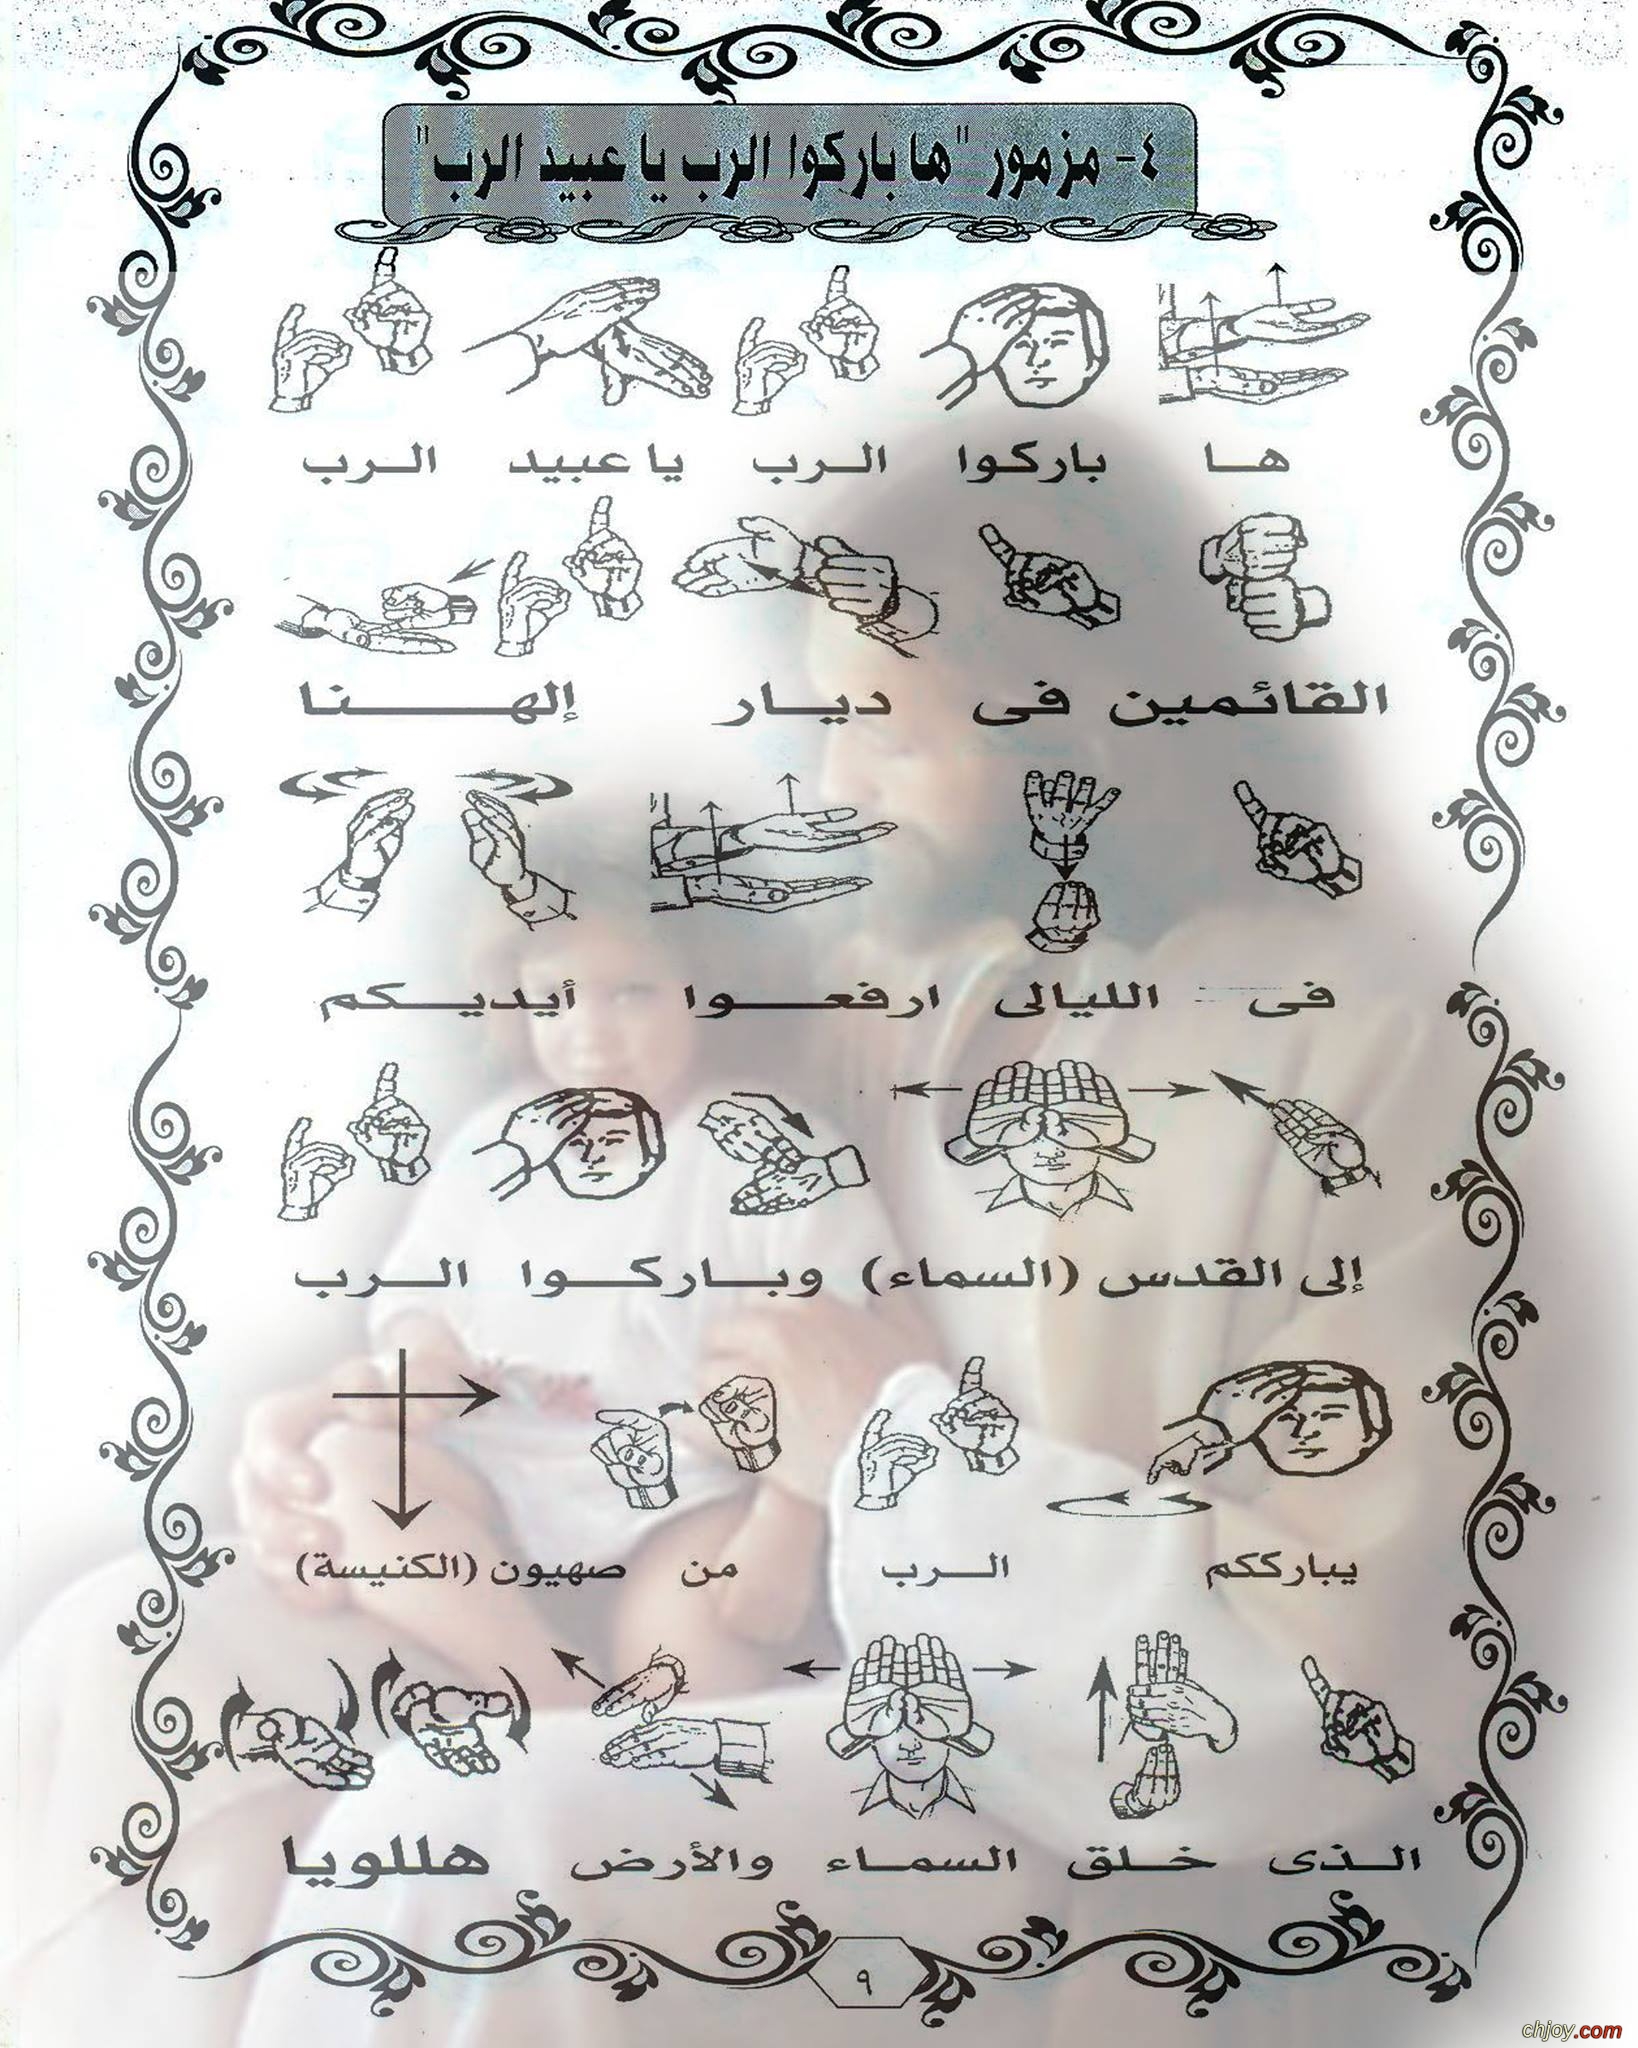 ٤- مزمور "ها باركوا الرب يا عبيد الرب"
ها باركوا الرب يا عبيد الرب
القائمين فى ديار إلهنا
فى الليالى ارفعوا أيديكم
إلى القدس (السماء) وباركوا الرب
يبارككم الرب من صهيون (الكنيسة)
الذى خلق السماء والأرض هللويا
٩
chjoy.com